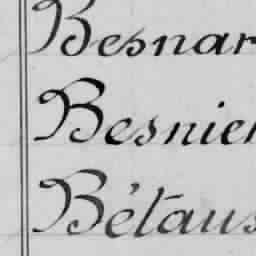 Besnar
Besnier
Bétaus